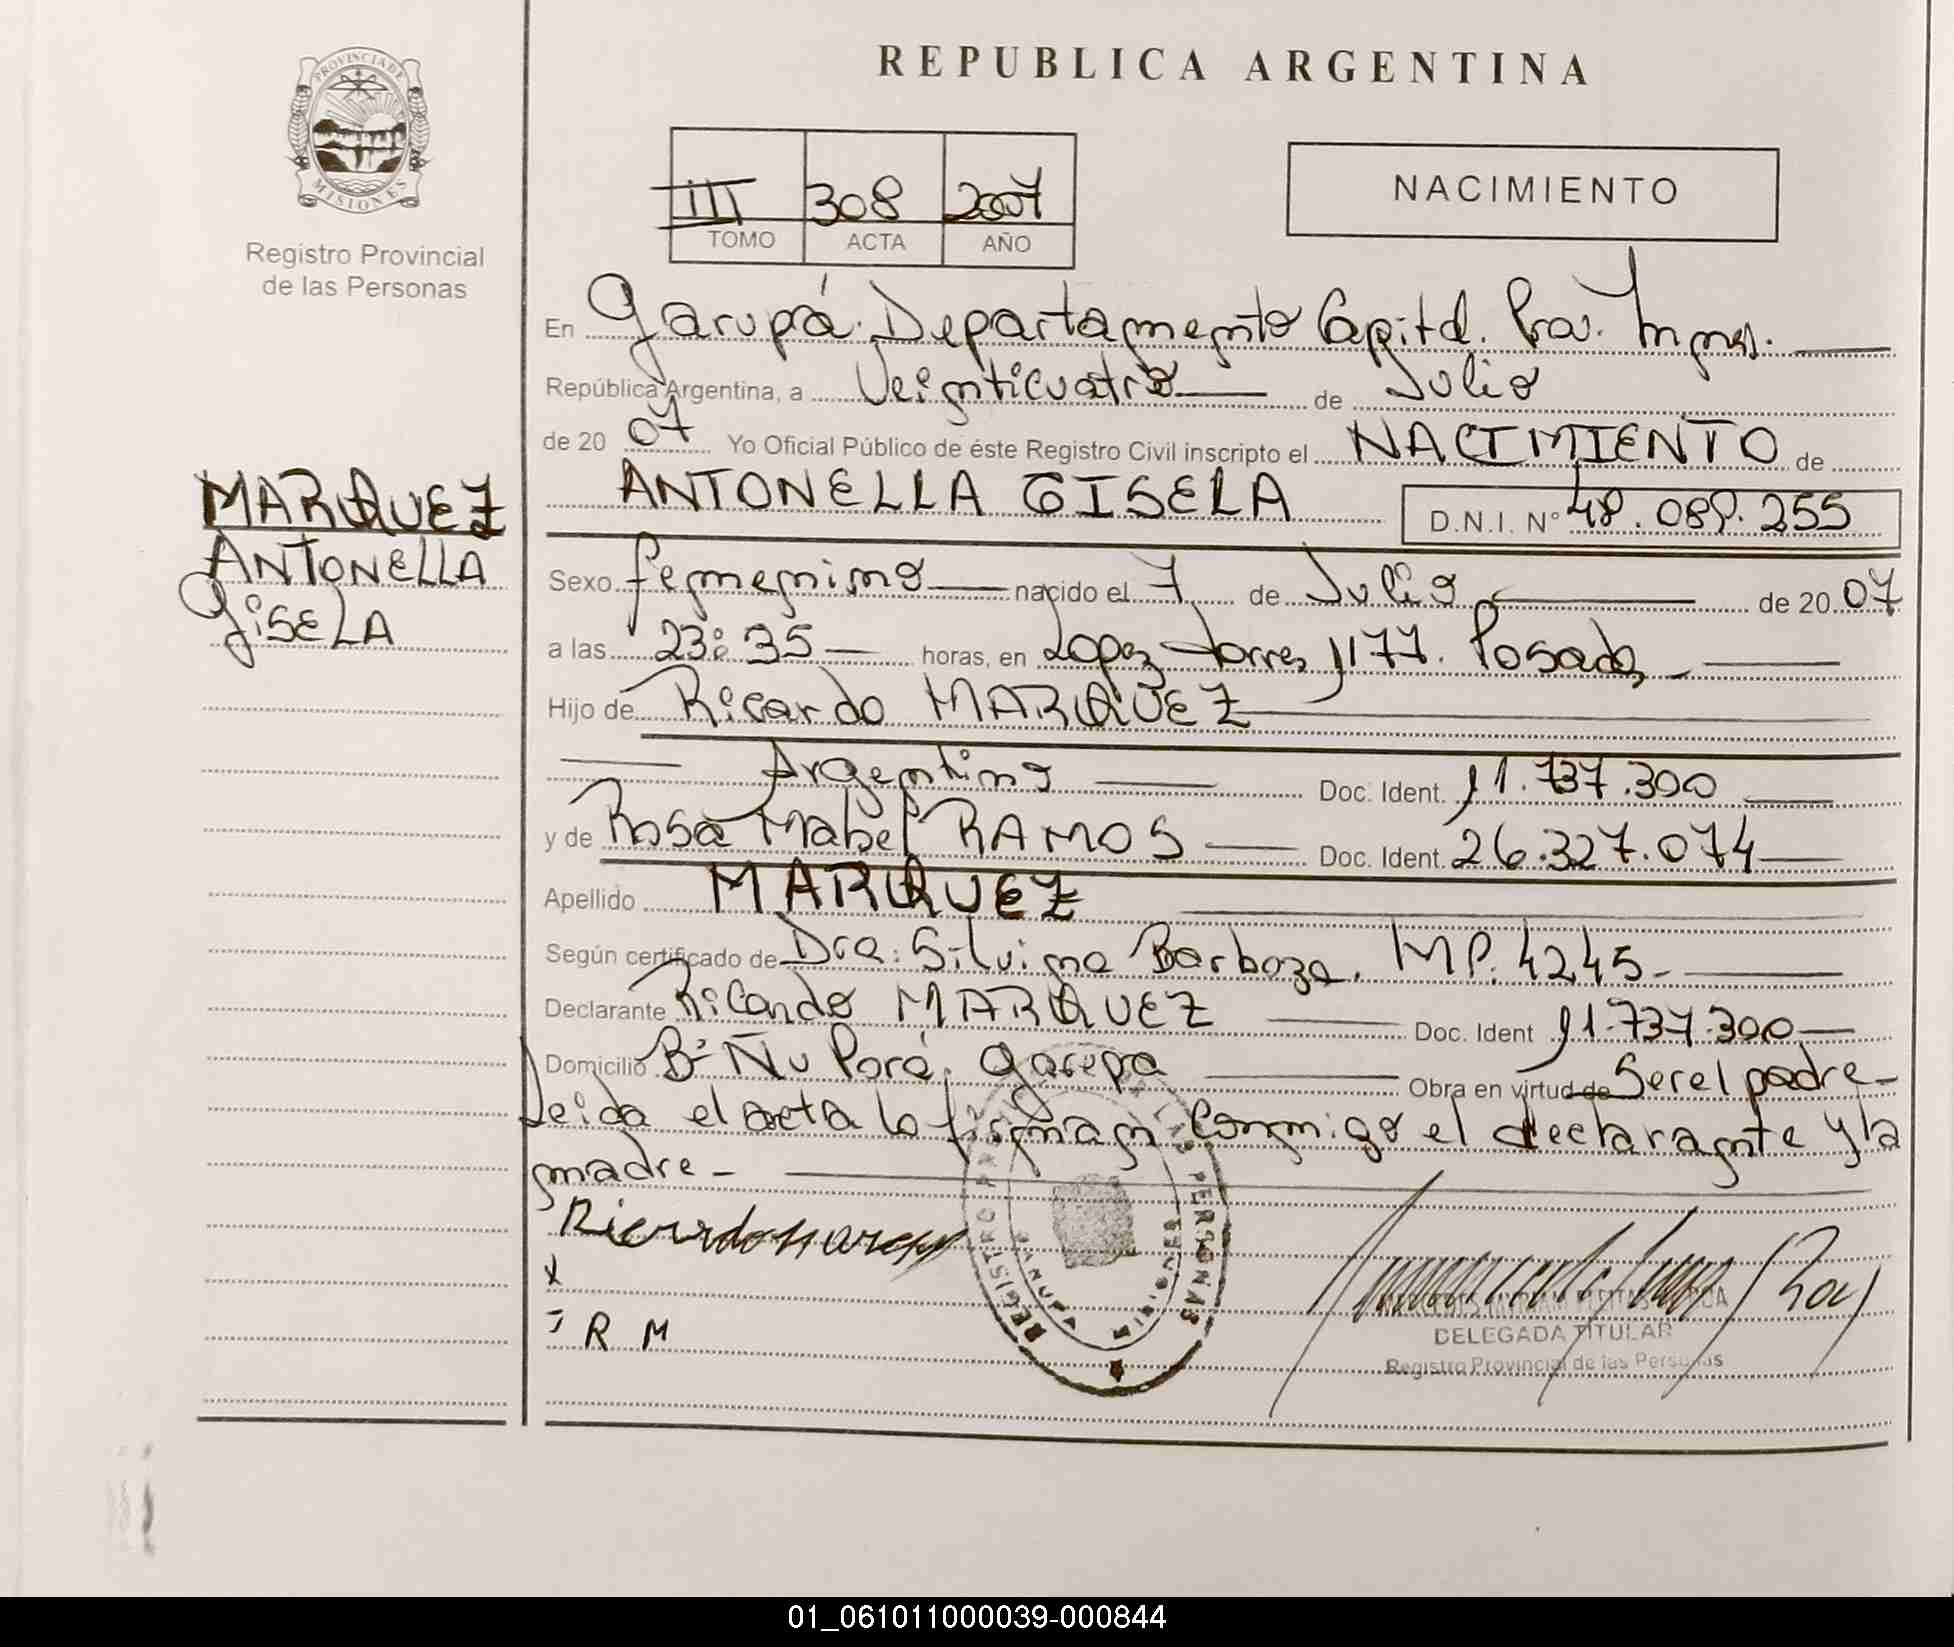 PROVINCIA DE
MISIONES
Registro Provincial
de las Personas
REPUBLICA ARGENTINA
III 308 2007
TOMO ACTA AÑO
NACIMIENTO
En Garupá. Departamento Capital. Prov. Mnes.
República Argentina, a Veinticuatro de Julio
de 20 07 Yo Oficial Público de éste Registro Civil inscripto el NACIMIENTO de
ANTONELLA GISELA D.N.I. N° 48.089.255
MARQUEZ
ANTONELLA
GISELA
Sexo femenino nacido el 7 de Julio de 20 07
a las 23:35 horas, en Lopez Torres 1177. Posadas
Hijo de Ricardo MARQUEZ
Argentino Doc. Ident. 11.737.300
y de Rosa Mabel RAMOS Doc. Ident. 26.327.074
Apellido MARQUEZ
Según certificado de Dra: Silvina Barboza. MP. 4245-
Declarante Ricardo MARQUEZ Doc. Ident 11.737.300
Domicilio B° Ñu Porá. Garupa Obra en virtud de Ser el padre-
Leida el acta la firman conmigo el declarante y la
madre-
Ricardo
x
R M
REGISTRO LAS PERSONAS
DELEGADA TITULAR
Registro Provincial de las Personas
01_061011000039-000844